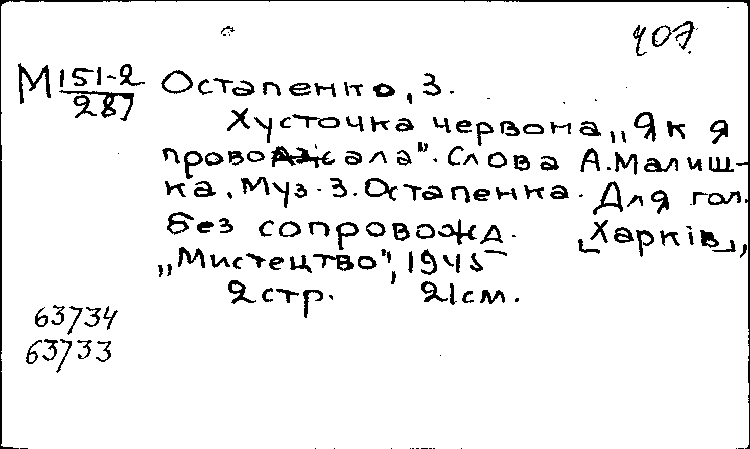 407
М 151-2/287 Остапенко, З.
Хусточка червона „Як я
проводжала". Слова А. Малиш-
ка. Муз. З. Остапенка. Для гол.
без сопровожд. [Харків],
„Мистецтво", 1945
2 стр. 21 см.
63734
63733